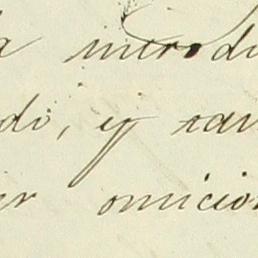 a introdu
do, y ran
ir omicion